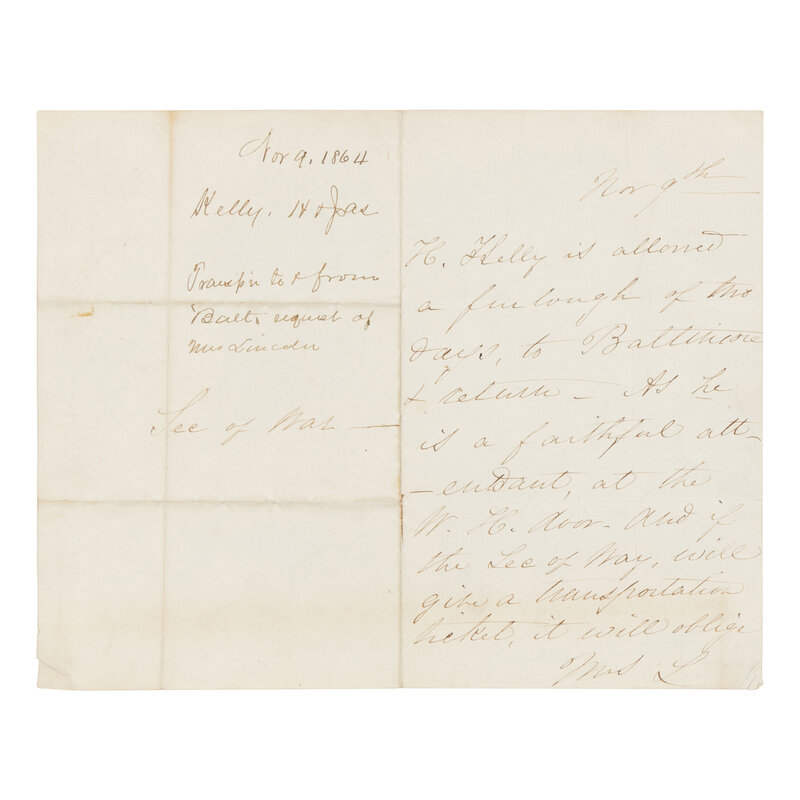 Nov 9. 1864
Kelly. H & Jas
Transp'n to & from
Balt. request of
Mrs Lincoln
Sec of War —
Nov 9th
H. Kelly is allowed
a furlough of two
days, to Baltimore
& return — As he
is a faithful att-
-endant, at the
W. H. door - And if
the Sec of War, will
give a transportation
ticket, it will oblige
Mrs L